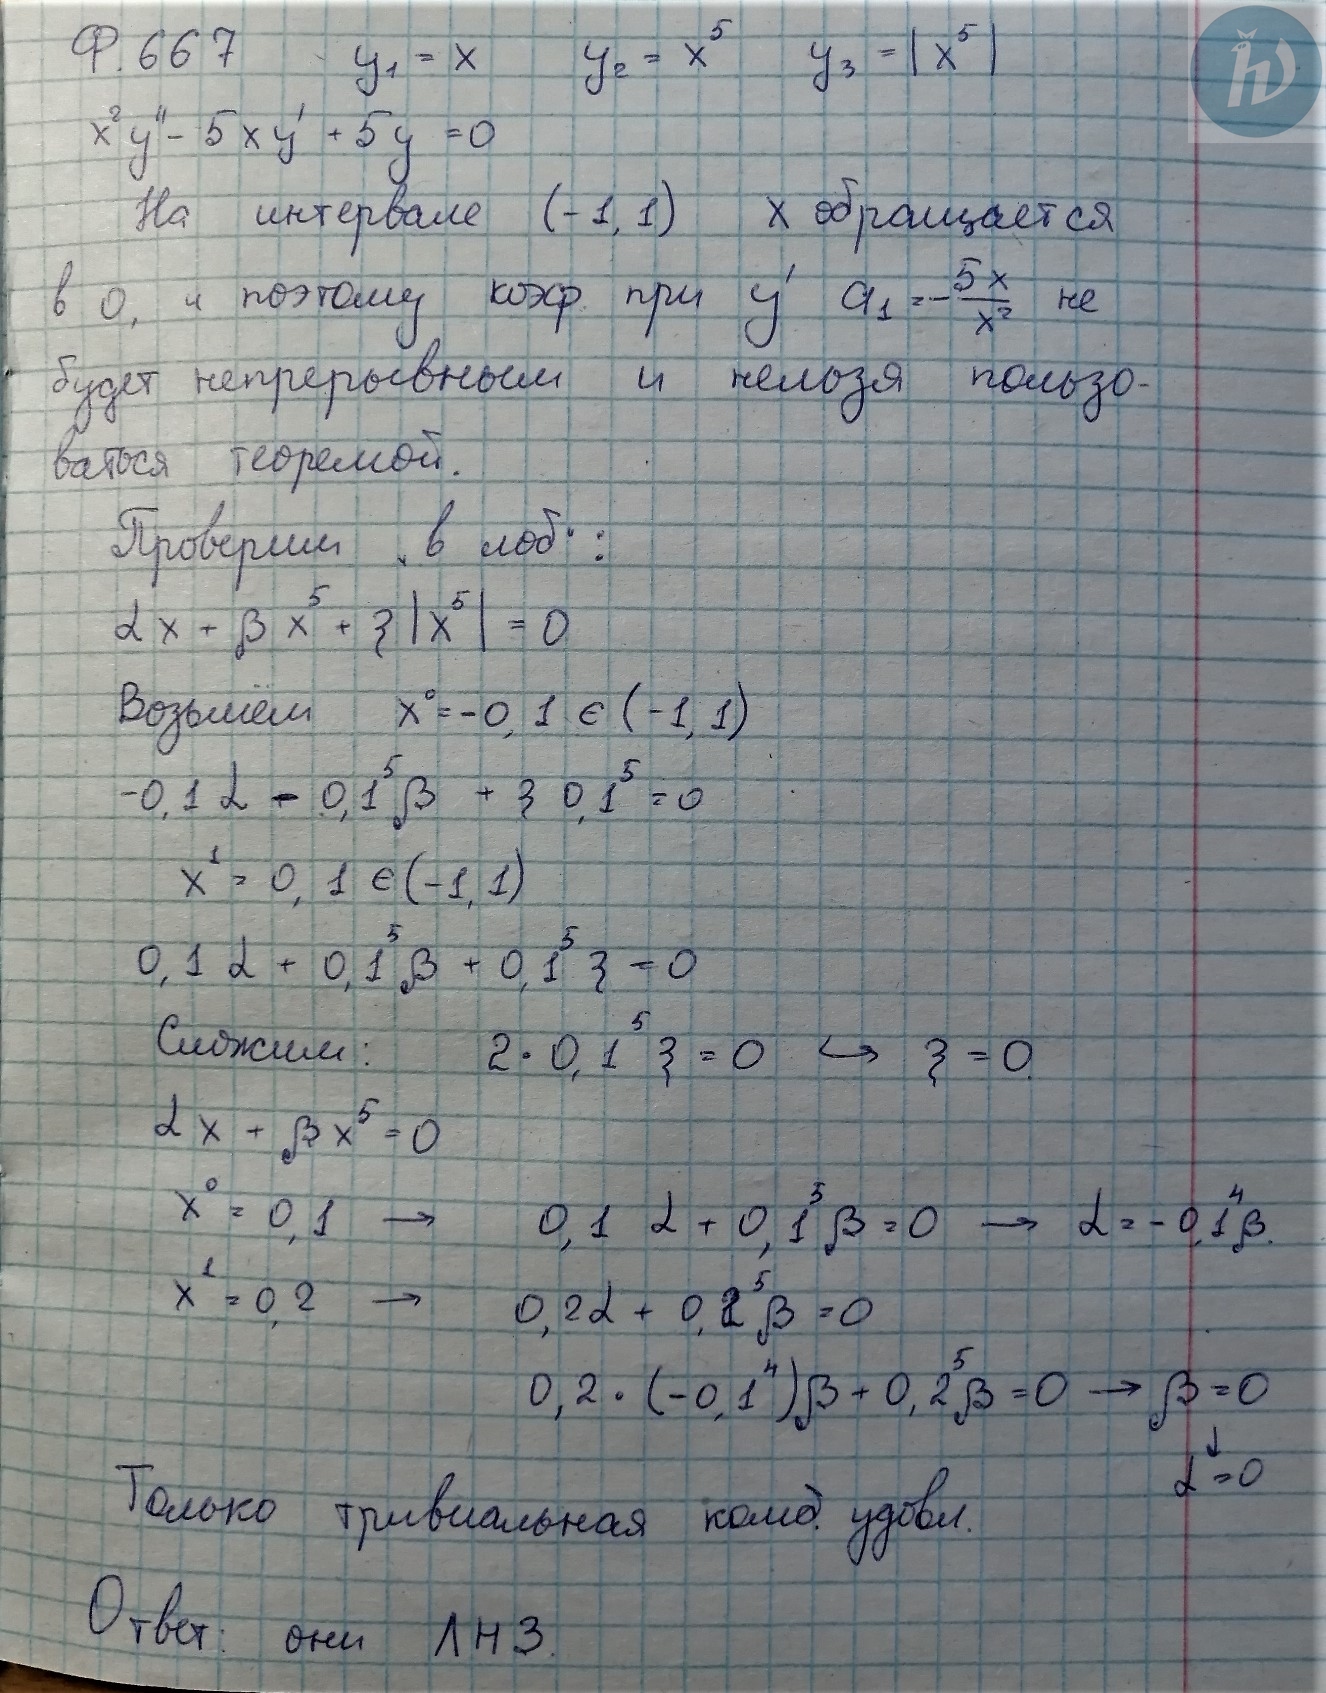 Ф.667 y₁ = x y₂ = x⁵ y₃ = |x⁵|
x²y'' - 5xy' + 5y = 0
На интервале (-1, 1) x обращается
в 0, и поэтому коэф. при y' a₁ = -5x/x² не
будет непрерывным и нельзя пользо-
ваться теоремой.
Проверим "в лоб":
αx + βx⁵ + ξ|x⁵| = 0
Возьмём x⁰ = -0,1 ∈ (-1, 1)
-0,1α - 0,1⁵β + ξ 0,1⁵ = 0
x¹ = 0,1 ∈ (-1, 1)
0,1α + 0,1⁵β + 0,1⁵ξ = 0
Сложим: 2·0,1⁵ξ = 0 ↪ ξ = 0
αx + βx⁵ = 0
x⁰ = 0,1 → 0,1 α + 0,1⁵β = 0 → α = -0,1⁴β.
x¹ = 0,2 → 0,2α + 0,2⁵β = 0
0,2·(-0,1⁴)β + 0,2⁵β = 0 → β = 0
↓
α = 0
Только тривиальная комб. удовл.
Ответ: они ЛНЗ.